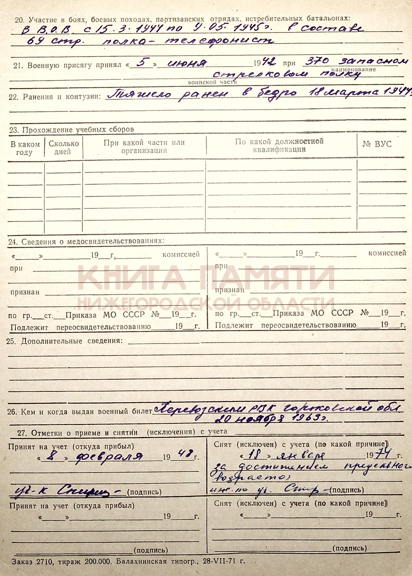 20. Участие в боях, боевых походах, партизанских отрядах, истребительных батальонах:
В В.О.В. с 15.3.1944 по 9.05.1945г. в составе
69 стр. полка - телефонист
21. Военную присягу принял «5» июня 1942 при 370 запасном
наименование
стрелковом полку
воинской части
22. Ранения и контузии: Тяжело ранен в бедро 18 марта 1944г.
23. Прохождение учебных сборов
В каком году
Сколько дней
При какой части или организации
По какой должностной квалификации
№ ВУС
24. Сведения о медосвидетельствованиях:
«___»______19__г., комиссией
«___»______19__г., комиссией
при
при
КНИГА ПАМЯТИ
признан
признан
НИЖЕГОРОДСКОЙ ОБЛАСТИ
по гр.__ст.__Приказа МО СССР №__19__г.
по гр.__ст.__Приказа МО СССР №__19__г.
Подлежит переосвидетельствованию 19__г.
Подлежит переосвидетельствованию 19__г.
25. Дополнительные сведения:
26. Кем и когда выдан военный билет Перевозским РВК Горьковской обл
20 ноября 1963г.
27. Отметки о приеме и снятии (исключении) с учета
Принят на учет (откуда прибыл)
Снят (исключен) с учета (по какой причине)
«8» февраля 1948г.
«18» января 1974г.
за достижением предельного
возраста
(подпись)
(подпись)
Принят на учет (откуда прибыл)
Снят (исключен) с учета (по какой причине)
«___»______19__г.
«___»______19__г.
(подпись)
(подпись)
Заказ 2710, тираж 200.000. Балахнинская типогр., 28-VII-71 г.